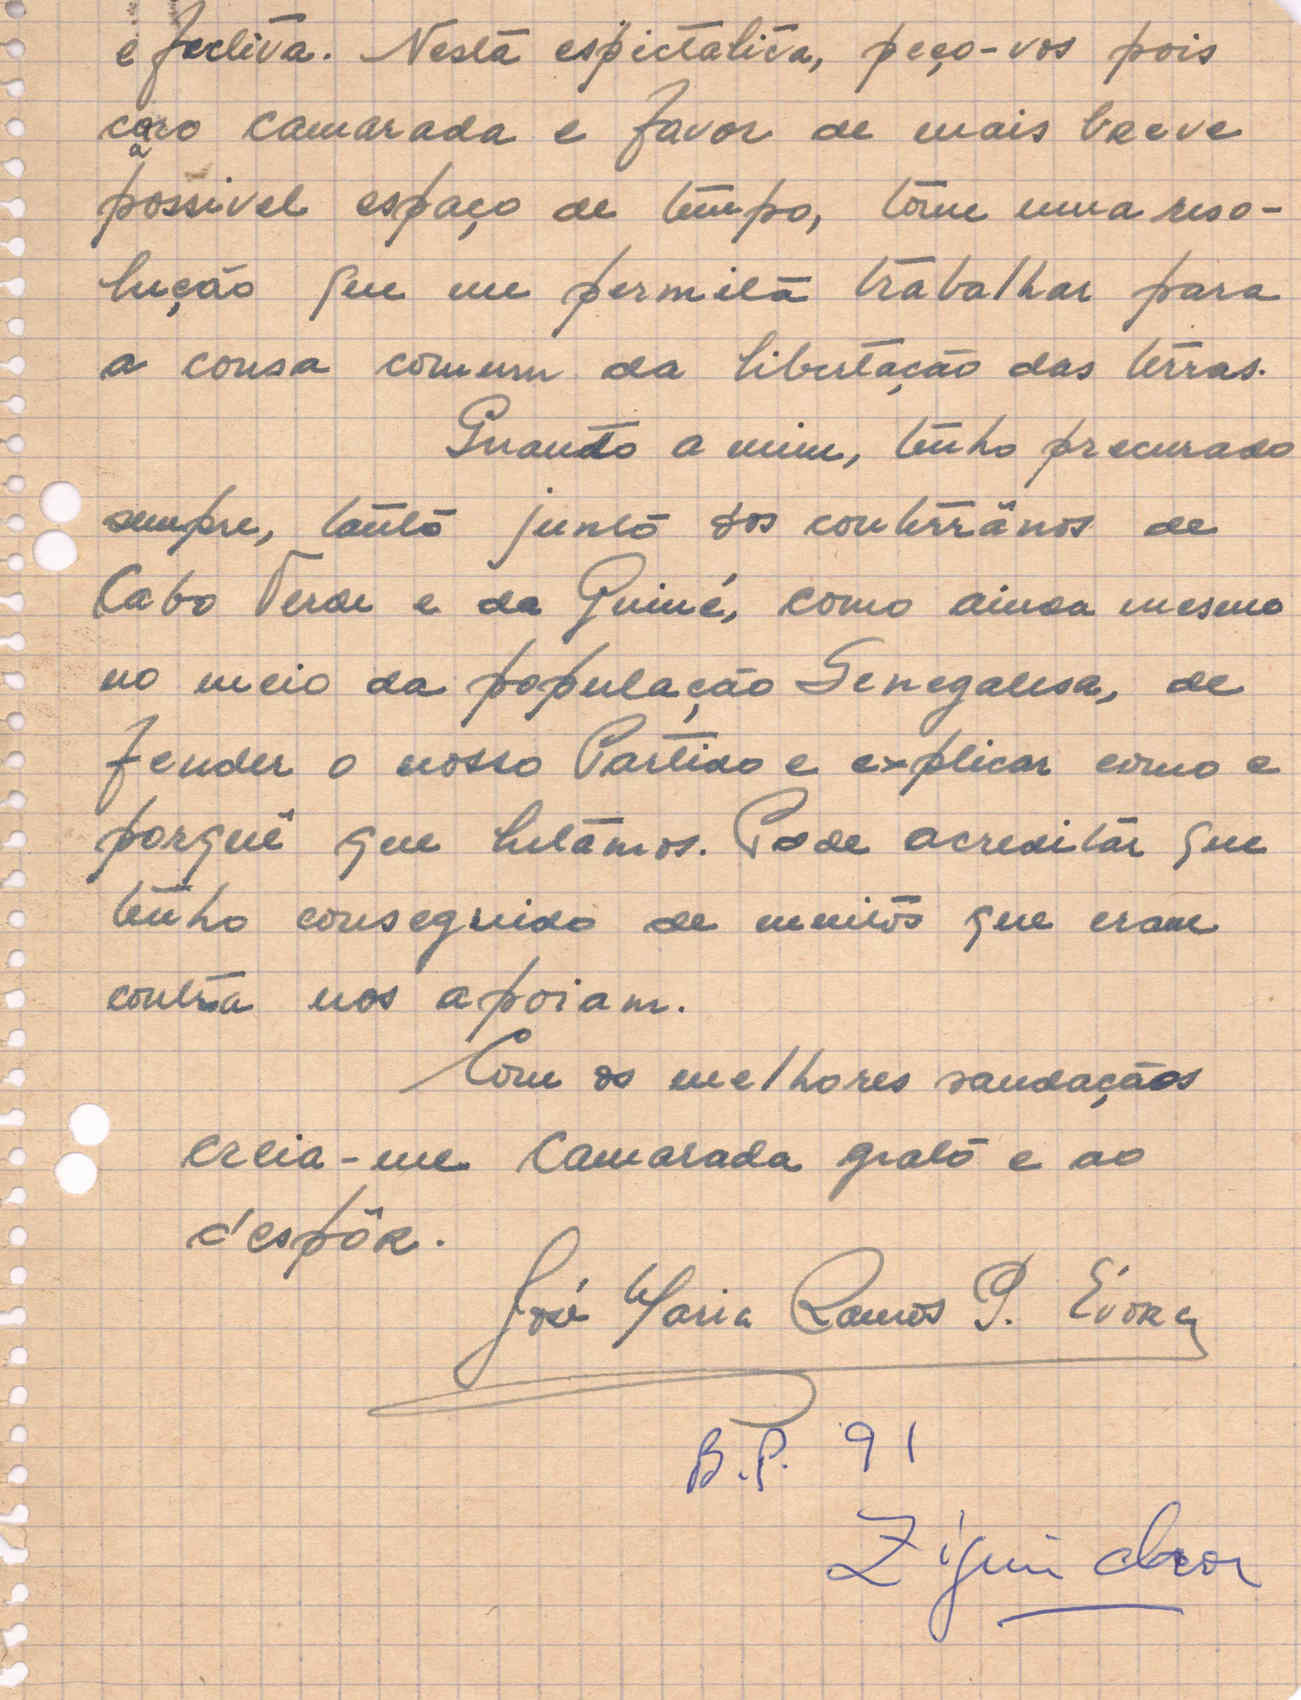 efectiva. Nesta espictativa, peço-vos pois
caro camarada e favor de mais breve
possivel espaço de tempo, tome uma reso-
lução que me permita trabalhar para
a cousa comum da libertação das terras.
Quanto a mim, tenho precurado
sempre, tanto junto dos conterrânos de
Cabo Verde e da Guiné, como ainda mesmo
no meio da população Senegalesa, de
fender o nosso Partido e explicar como e
porquê que lutâmos. Pode acreditar que
tenho conseguido de muitos que eram
contra nos apoiam.
Com os melhores saudaçãos
creia-me camarada grato e ao
despôr.
José Maria Ramos P. Évora
B.P. 91
Ziguinchor